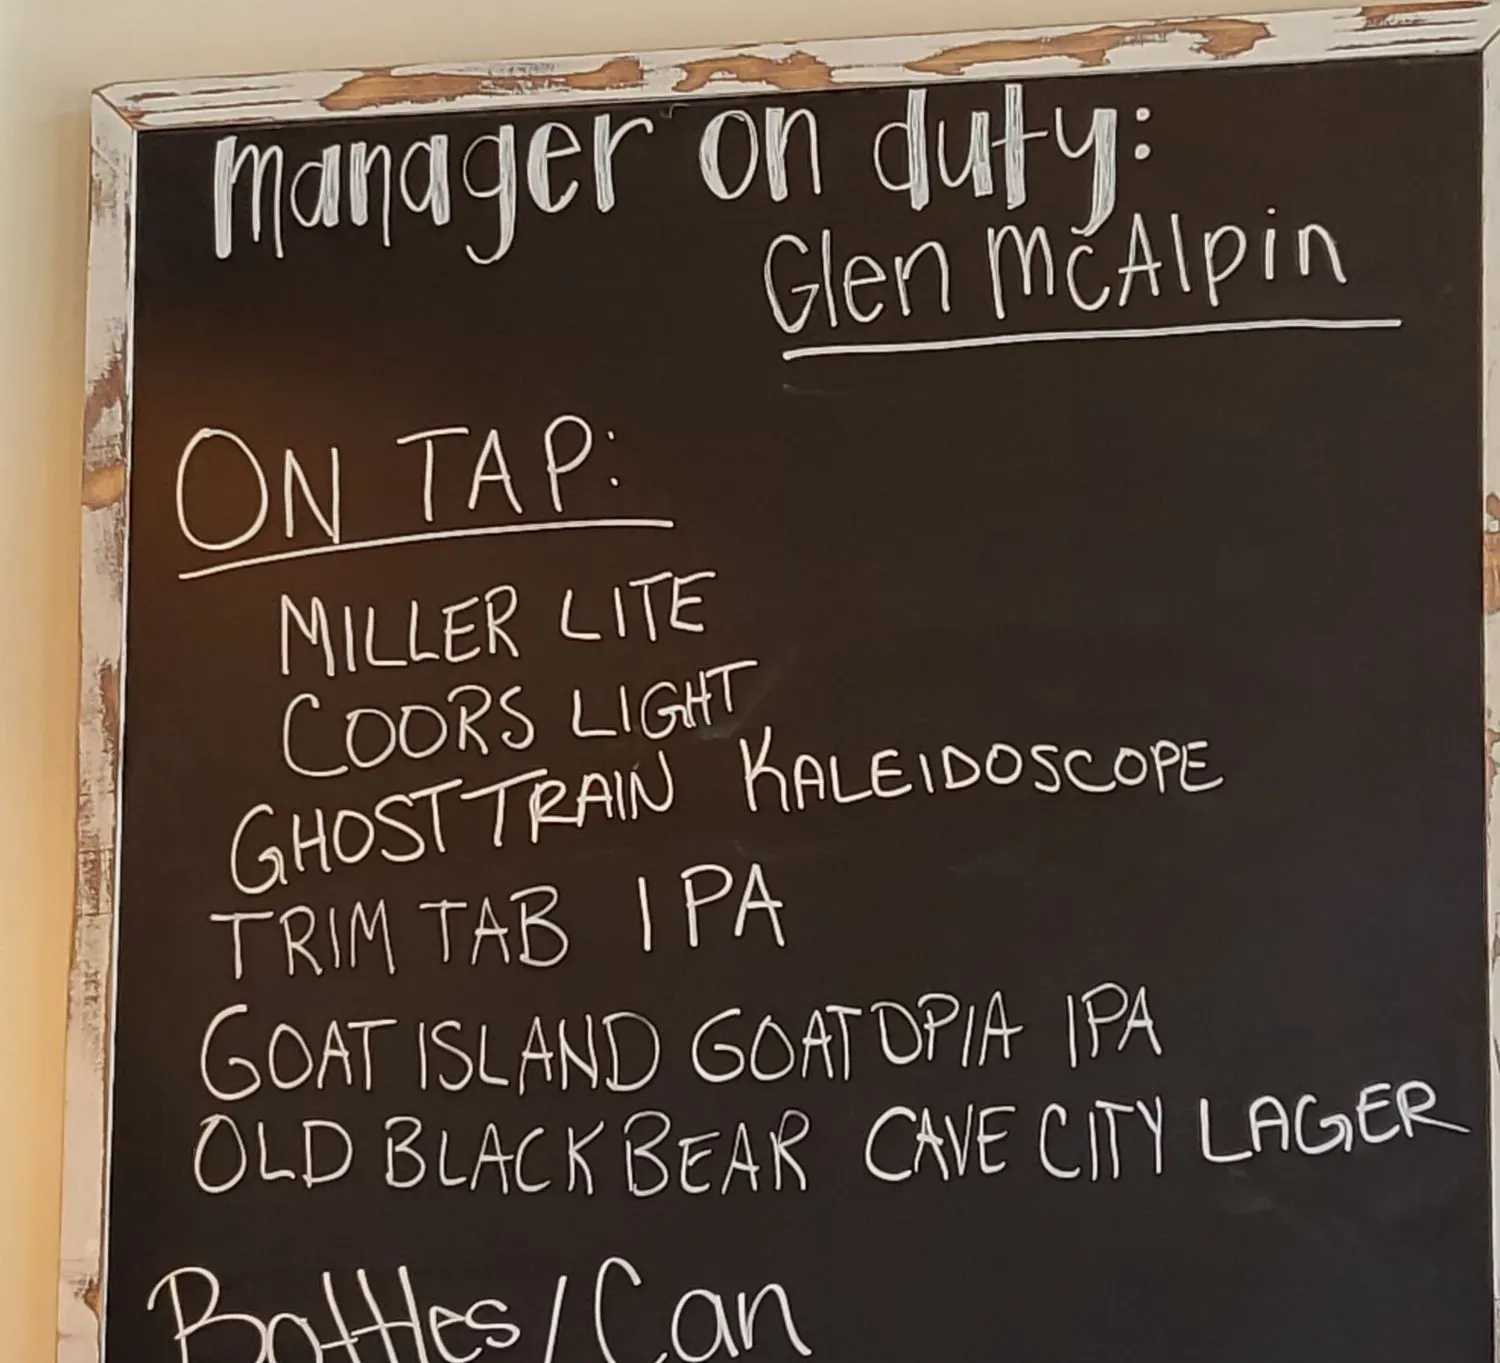 manager on duty:
Glen McAlpin
ON TAP:
MILLER LITE
COORS LIGHT
GHOST TRAIN KALEIDOSCOPE
TRIM TAB IPA
GOAT ISLAND GOATOPIA IPA
OLD BLACK BEAR CAVE CITY LAGER
Bottles/Can